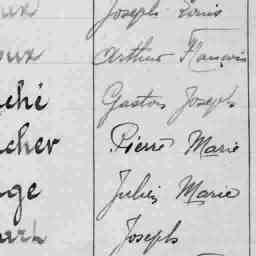 ux Joseph Louis
oux Arthur François
ché Gaston Joseph
cher Pierre Marie
ge Jules Marie
Joseph